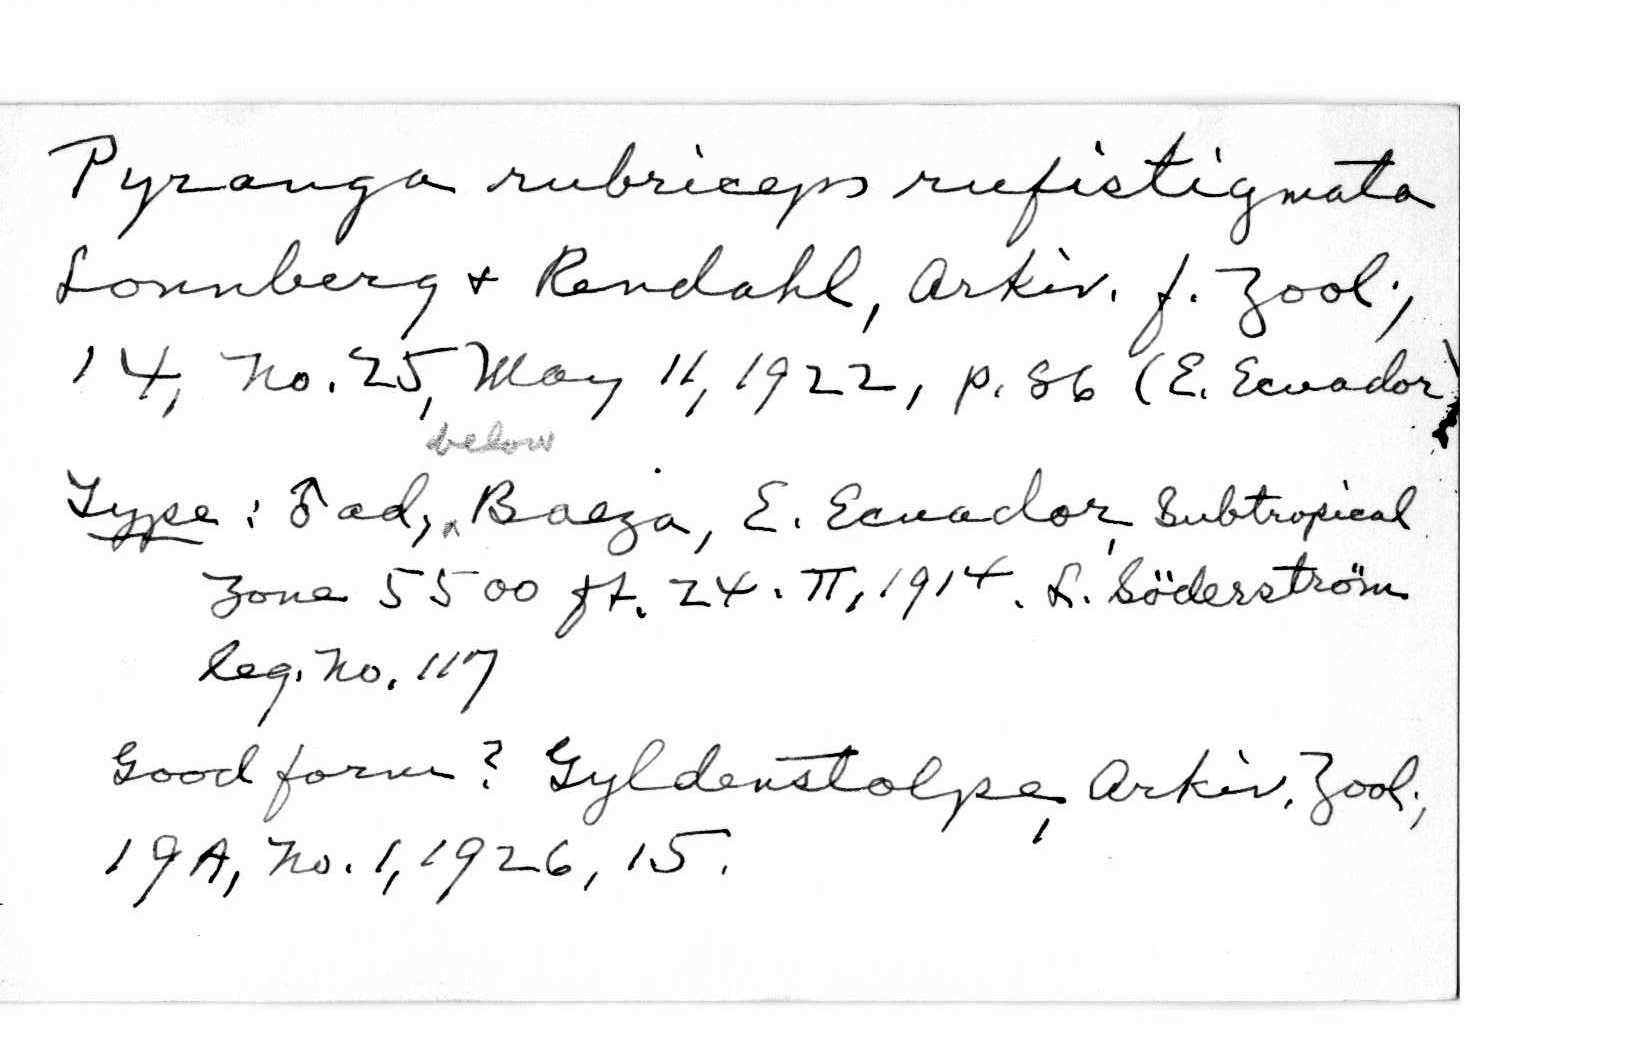 Pyranga rubriceps rufistigmata
Lonnberg + Rendahl, Arkiv. f. Zool.,
14, No. 25, May 11, 1922, p. 86 (E. Ecuador)
below
Type: ♂ ad, ^ Baeza, E. Ecuador, Subtropical
Zone 5500 ft. 24. II, 1914. L. Söderström
leg. No. 117
Good form? Gyldenstolpe, Arkiv. Zool.,
19A, No. 1, 1926, 15.